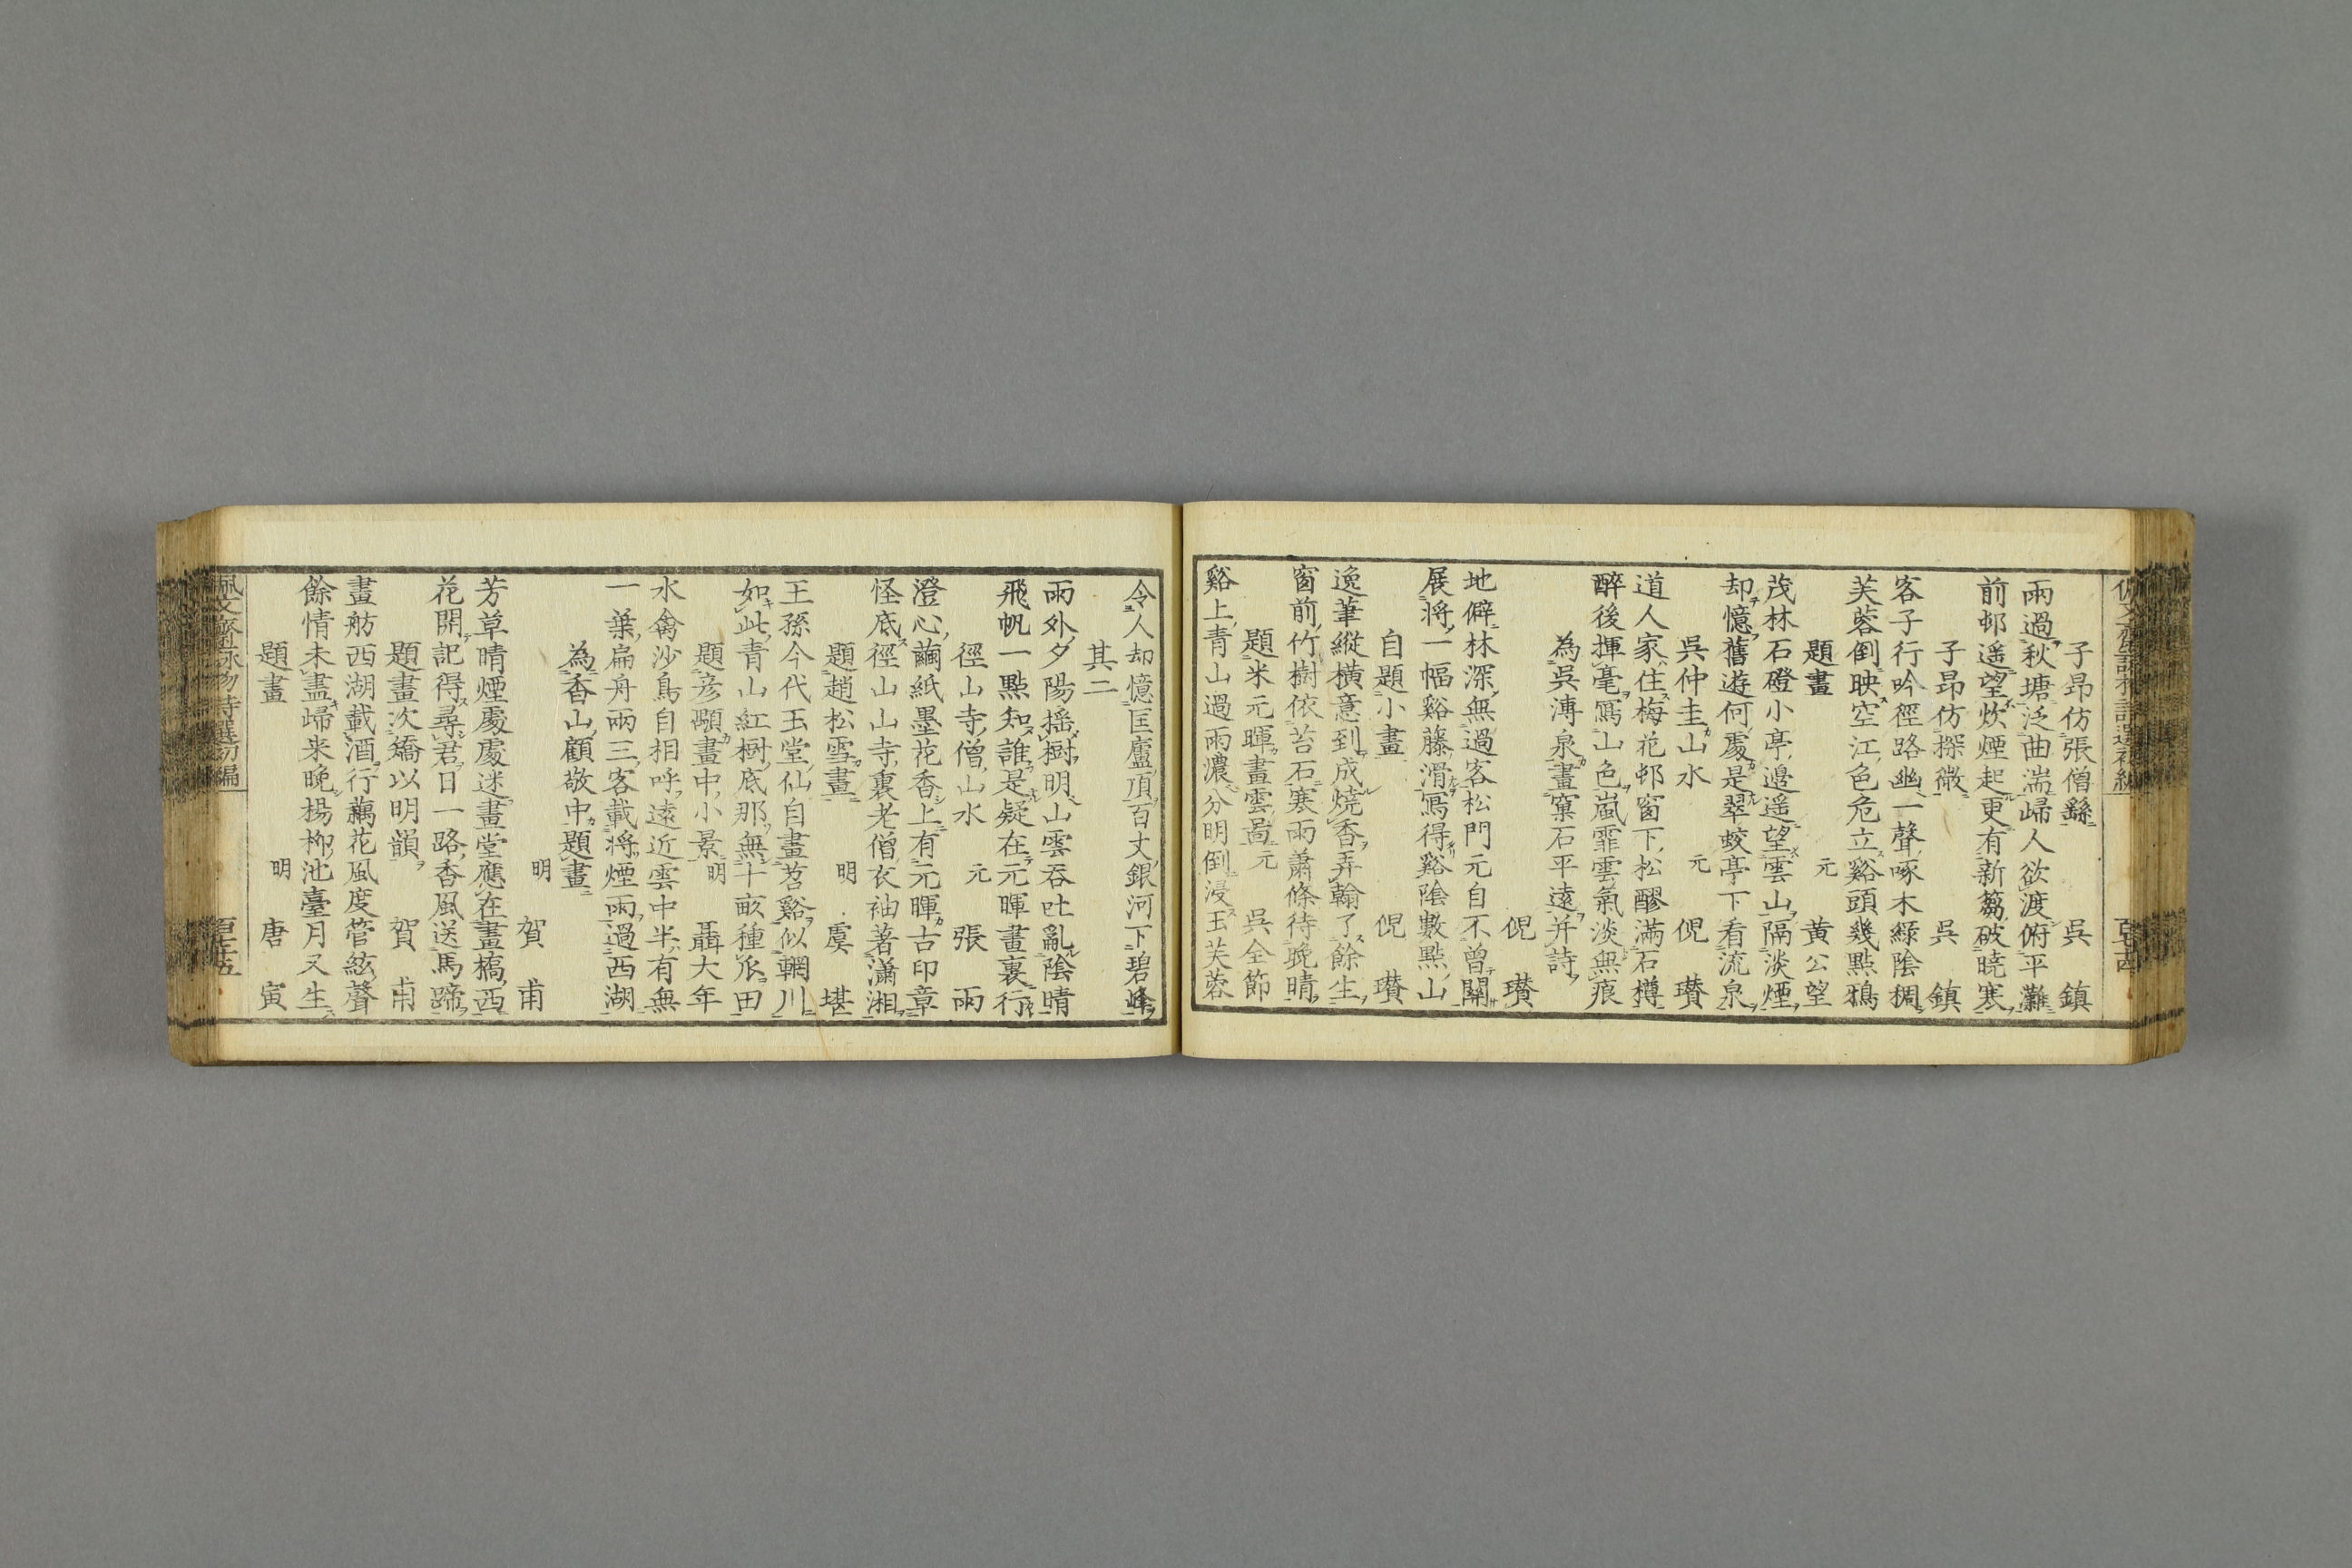 子昂仿張僧繇 吳鎮
雨過秋塘泛曲湍歸人欲渡俯平灘
前邨遥望炊煙起更有新蒭破暁寒
子昂仿探微 吳鎮
客子行吟徑路幽一聲啄木緑陰稠
芙蓉倒映空江色危立谿頭幾點鴉
題畫 元 黄公望
茂林石磴小亭邉遥望雲山隔淡煙
却憶舊遊何處是翠蛟亭下看流泉
吳仲圭山水 元 倪瓚
道人家住梅花邨窗下松醪満石樽
醉後揮毫寫山色嵐霏雲氣淡無痕
為吳溥泉畫窠石平遠并詩
倪瓚
地僻林深無過客松門元自不曾關
展将一幅谿藤滑寫得谿陰數點山
自題小畫 倪瓚
逸筆縦横意到成焼香弄翰了餘生
窗前竹樹依苔石寒雨蕭條待晩晴
題米元暉畫雲啚 元 吳全節
谿上青山過雨濃分明倒浸玉芙蓉
令人却憶匡廬頂百丈銀河下碧峰
其二
雨外夕陽揺樹明山雲呑吐亂陰晴
飛帆一點知誰是疑在元暉畫裏行
徑山寺僧山水 元 張雨
澄心繭紙墨花香上有元暉古印章
怪底徑山山寺裏老僧衣袖著瀟湘
題趙松雪畫 明 虞堪
王孫今代玉堂仙自畫苕谿似輞川
如此青山紅樹底那無十畝種瓜田
題彦顒畫中小景 明 聶大年
水禽沙鳥自相呼遠近雲中半有無
一葉扁舟兩三客載将煙雨過西湖
為香山顧敬中題畫
明 賀甫
芳草晴煙處處迷畫堂應在畫橋西
花開記得尋君日一路香風送馬蹄
題畫次繑以明韻 賀甫
畫舫西湖載酒行藕花風度管絃聲
餘情未盡歸来晩楊栁池臺月又生
題畫 明 唐寅
佩文齋詠物詩選初編
百七十五